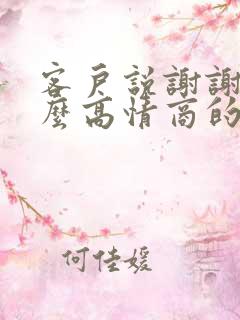 客戶說謝謝
麼高情商的
何佳媛